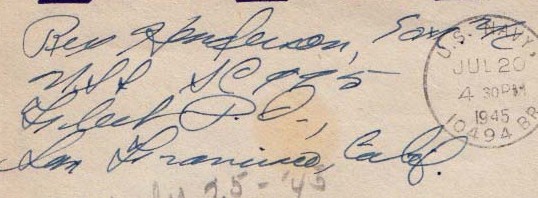 Rex Henderson, Sox M/c
USS SC 995
Fleet P.O.,
San Francisco, Calif.
U.S. NAVY
JUL 20
4 30 PM
1945
10494 BR
July 25-'45